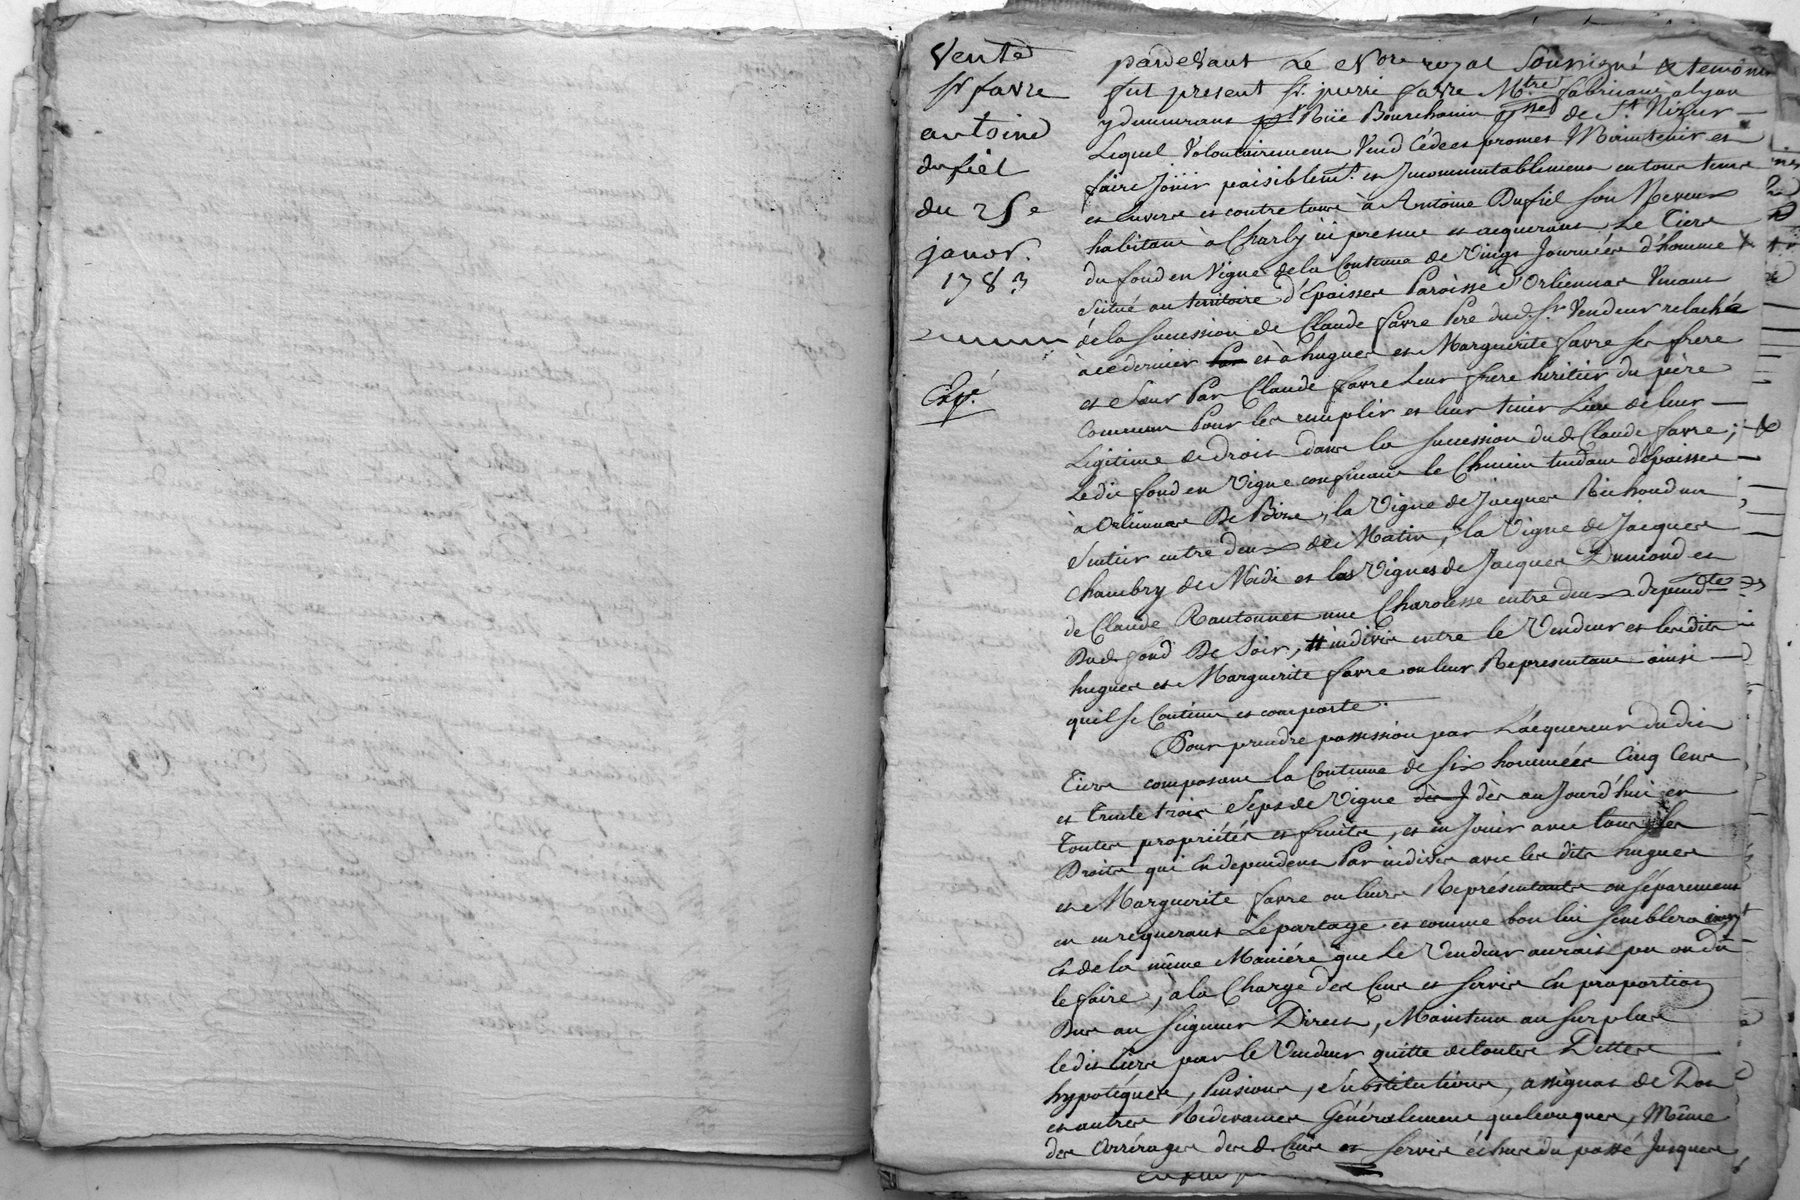 Vente
Sr favre
antoine
dufiel
du 25e
janvr.
1783
Expé.
pardevant Le Nore royal Soussigné & temoins
fut present Sr. pierre favre Mtre fabricant a lyon
y demeurant Rüe Bourchanin psse de St. Nizier
Lequel volontairement Vend Cede et promet Maintenir et
faire Joüir paisiblemt. et Incommutablement en tous tems
et envers et contre tous à Antoine Dufiel son Neveu
habitant à Charly ici present et acquerant Le Tiers
du fond en Vigne de la Contenue de Vingt Journées d'homme
Situé au territoire d'Epaisses Paroisse d'Orlienas Venant
de la succession de Claude favre Pere dud. Sr Vendeur relaché
à ce dernier et à hugues et Marguerite favre ses frere
et Sœur Par Claude favre Leur frere héritier du père
Commun Pour les remplir et leur tenir Lieu de leur
Légitime de droit dans la succession dud Claude favre;
Ledit fond en Vigne confinant le Chemin tendant d'épaisses
à Orlienas De Bize, la Vigne de Jacques Richoud un
Sentier entre deux de Matin, la Vigne de Jacques
Chambry de Midi et les Vignes de Jacques Dumond et
de Claude Rautonnet une Charolesse entre deux dépendte
Dud. fond De Soir, indivis entre le Vendeur et lesdits
hugues et Marguerite favre ou leur Representant ainsi
quil se Contient et comporte.
Pour prendre possession par L'acquereur du dit
Tiers composant la Contenue de six hommées Cinq Cent
et trente trois Seps de Vigne dès J dès aujourd'hui en
Toutes propriétés et fruits, et en Jouir avec tous les
Droits qui en dependent Par indivis avec les dits hugues
et Marguerite favre ou leurs Représentants ou séparement
en en requerant Le partage et comme bon lui semblera
et de la même Maniére que Le Vendeur aurait pu ou dû
le faire, à la Charge des Cens et servis en proportion
Dus au Seigneur Direct, Maintenu au surplus
ledit tiers par le Vendeur quitte de toutes Dettes
hypotéques, Pensions, Substitutions, assignat de Dot
et autres Redevances Généralement quelconques, Même
des Arrérages des d. Cens et servis échus du passé Jusques